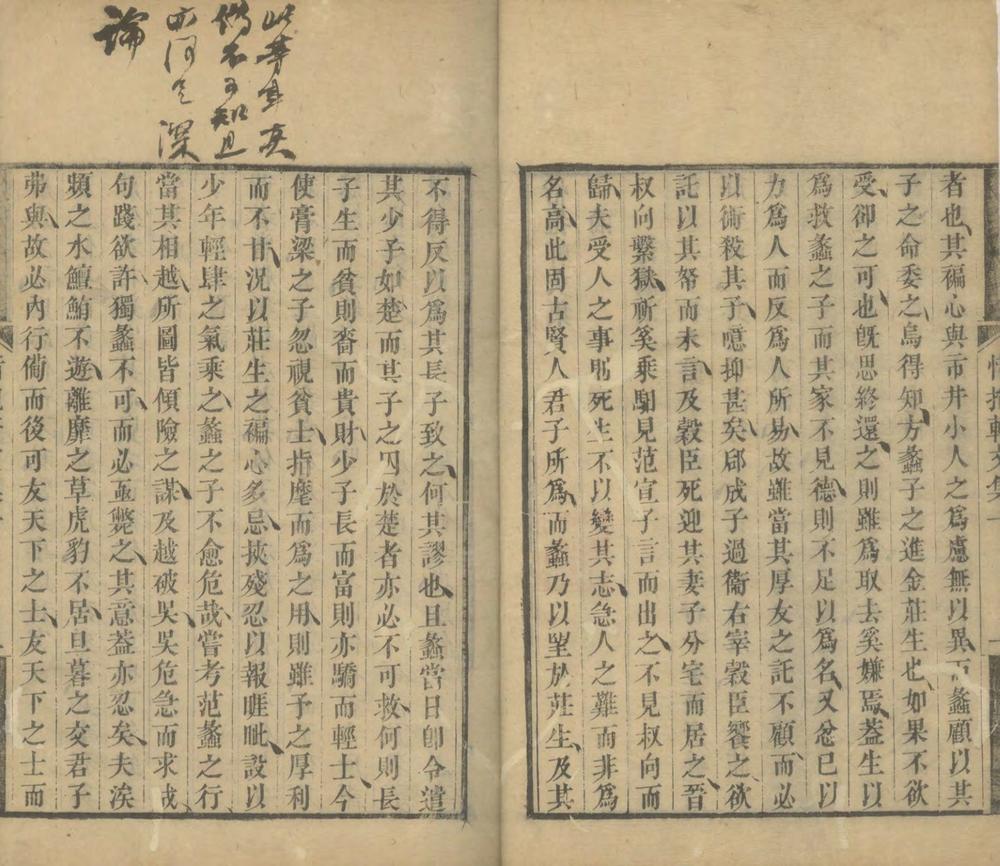 者也其褊心與市井小人之爲慮無以異而蠡顧以其
子之命委之烏得知方蠡子之進金莊生也如果不欲
受卻之可也旣思終還之則雖爲取去奚嫌焉葢生以
爲救蠡之子而其家不見德則不足以爲名又忿已以
力爲人而反爲人所易故雖當其厚友之託不顧而必
以術殺其子噫抑甚矣郈成子過衞右宰穀臣饗之欲
託以其帑而未言及穀臣死迎其妻子分宅而居之晉
叔向繫獄祈奚乘馹見范宣子言而出之不見叔向而
歸夫受人之事即死生不以變其志急人之難而非爲
名高此固古賢人君子所爲而蠡乃以望於莊生及其
不得反以爲其長子致之何其謬也且蠡當日卽令遣
其少子如楚而其子之囚於楚者亦必不可救何則長
子生而貧則嗇而貴財少子長而富則亦驕而輕士今
使膏粱之子忽視貧士指麾而爲之用則雖予之厚利
而不甘況以莊生之褊心多忌挾殘忍以報睚眦設以
少年輕肆之氣乘之蠡之子不愈危哉嘗考范蠡之行
當其相越所圖皆傾險之謀及越破吳吳危急而求成
句踐欲許獨蠡不可而必亟斃之其意葢亦忍矣夫涘
頻之水鱣鮪不遊離靡之草虎豹不居旦暮之交君子
弗與故必內行備而後可友天下之士友天下之士而
此等
不可知且
亦何足深
論